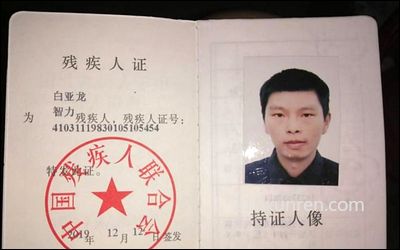 残疾人证
白亚龙
智力
为 残疾人，残疾人证号：
41031119830105105454
特发此证。
中国残疾人联合会
2019年 12月 12日签发
持证人像